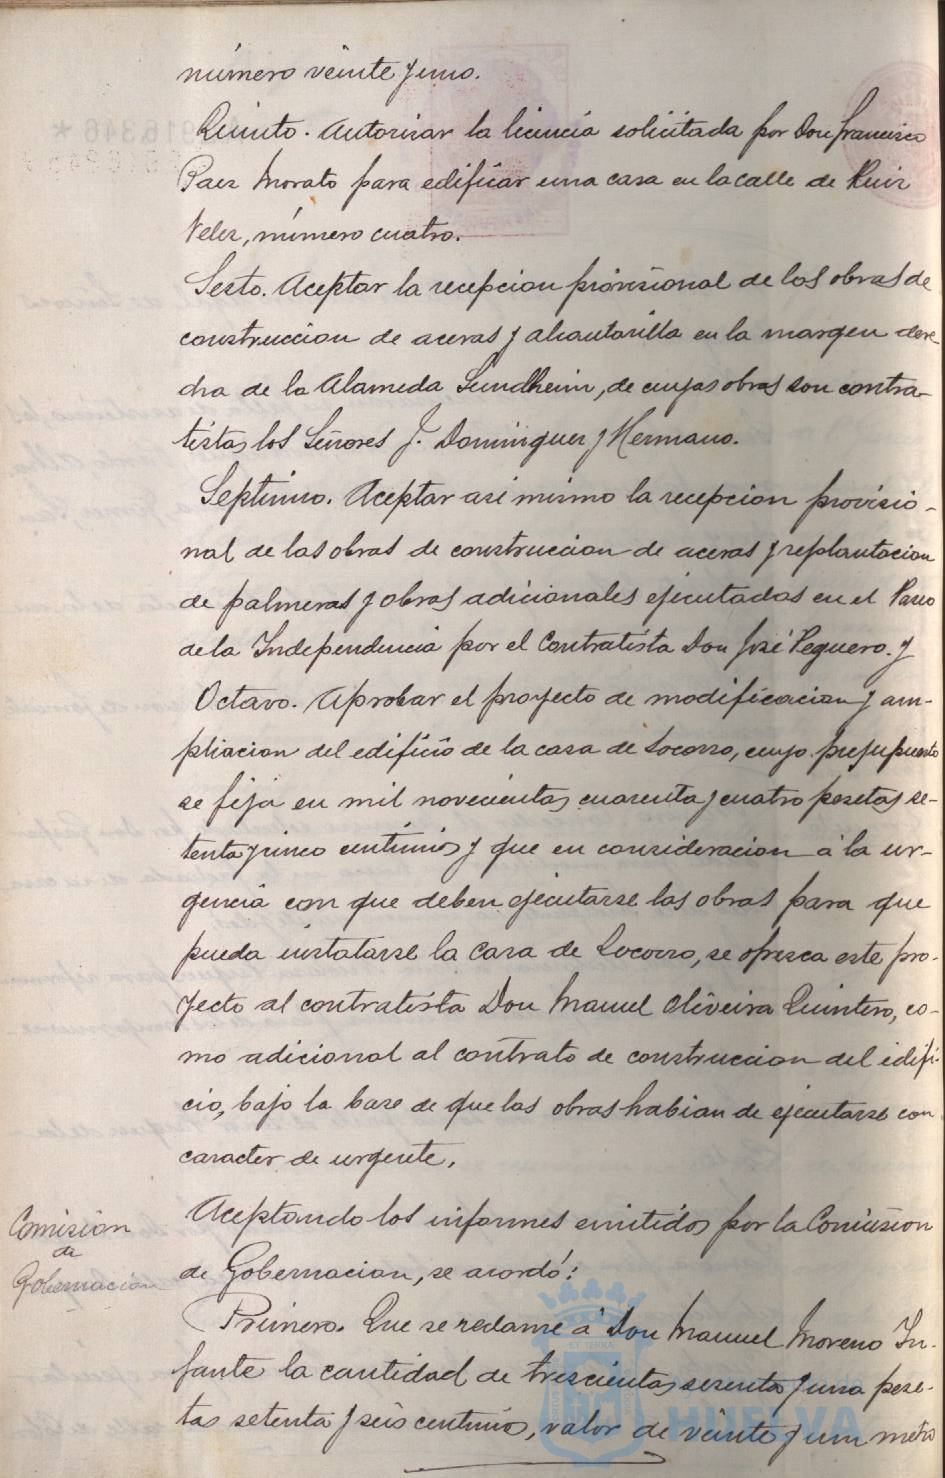 número veinte y uno.
Quinto. Autorizar la licencia solicitada por Don Francisco
Paez Morato para edificar una casa en la calle de Ruiz
Velez, número cuatro.
Sesto. Aceptar la recepcion provisional de los obras de
construccion de aceras y alcantarilla en la margen dere-
cha de la Alameda Sundheim, de cuyas obras son contra-
tistas los Señores J. Dominguez y Hermano.
Septimo. Aceptar asi mismo la recepcion provisio-
nal de las obras de construccion de aceras y replantacion
de palmeras y obras adicionales ejecutadas en el Paseo
de la Independencia por el Contratista Don José Peguero. y
Octavo. Aprobar el proyecto de modificacion y am-
pliacion del edificio de la casa de Socorro, cuyo presupuesto
se fija en mil novecientas cuarenta y cuatro pesetas se-
tenta y cinco centimos y que en consideracion á la ur-
gencia con que deben ejecutarse las obras para que
pueda instalarse la Casa de Socorro, se ofrezca este pro-
yecto al contratista Don Manuel Oliveira Quintero, co-
mo adicional al contrato de construccion del edifi-
cio, bajo la base de que las obras habian de ejecutarse con
caracter de urgente.
Comision
de
Gobernacion
Aceptando los informes emitidos por la Comision
de Gobernacion, se acordó:
Primero. Que se reclame á Don Manuel Moreno In-
fante la cantidad de trescientas sesenta y una pese-
tas setenta y seis centimos, valor de veinte y un metro
HUELVA